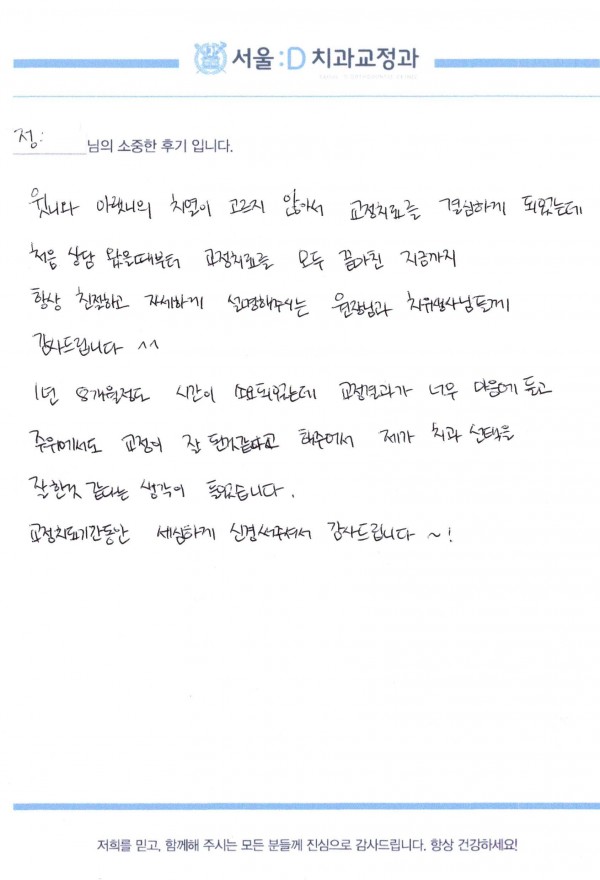 서울:D 치과교정과
정: 님의 소중한 후기 입니다.
윗니와 아랫니의 치열이 고르지 않아서 교정치료를 결심하게 되었는데
처음 상담 왔을때부터 교정치료를 모두 끝마친 지금까지
항상 친절하고 자세하게 설명해주시는 원장님과 치위생사님들께
감사드립니다 ^^
1년 8개월정도 시간이 소요되었는데 교정결과가 너무 마음에 들고
주위에서도 교정이 잘 된것같다고 해주어서 제가 치과 선택을
잘한것 같다는 생각이 들었습니다.
교정치료기간동안 세심하게 신경써주셔서 감사드립니다 ~!
저희를 믿고, 함께해 주시는 모든 분들께 진심으로 감사드립니다. 항상 건강하세요!